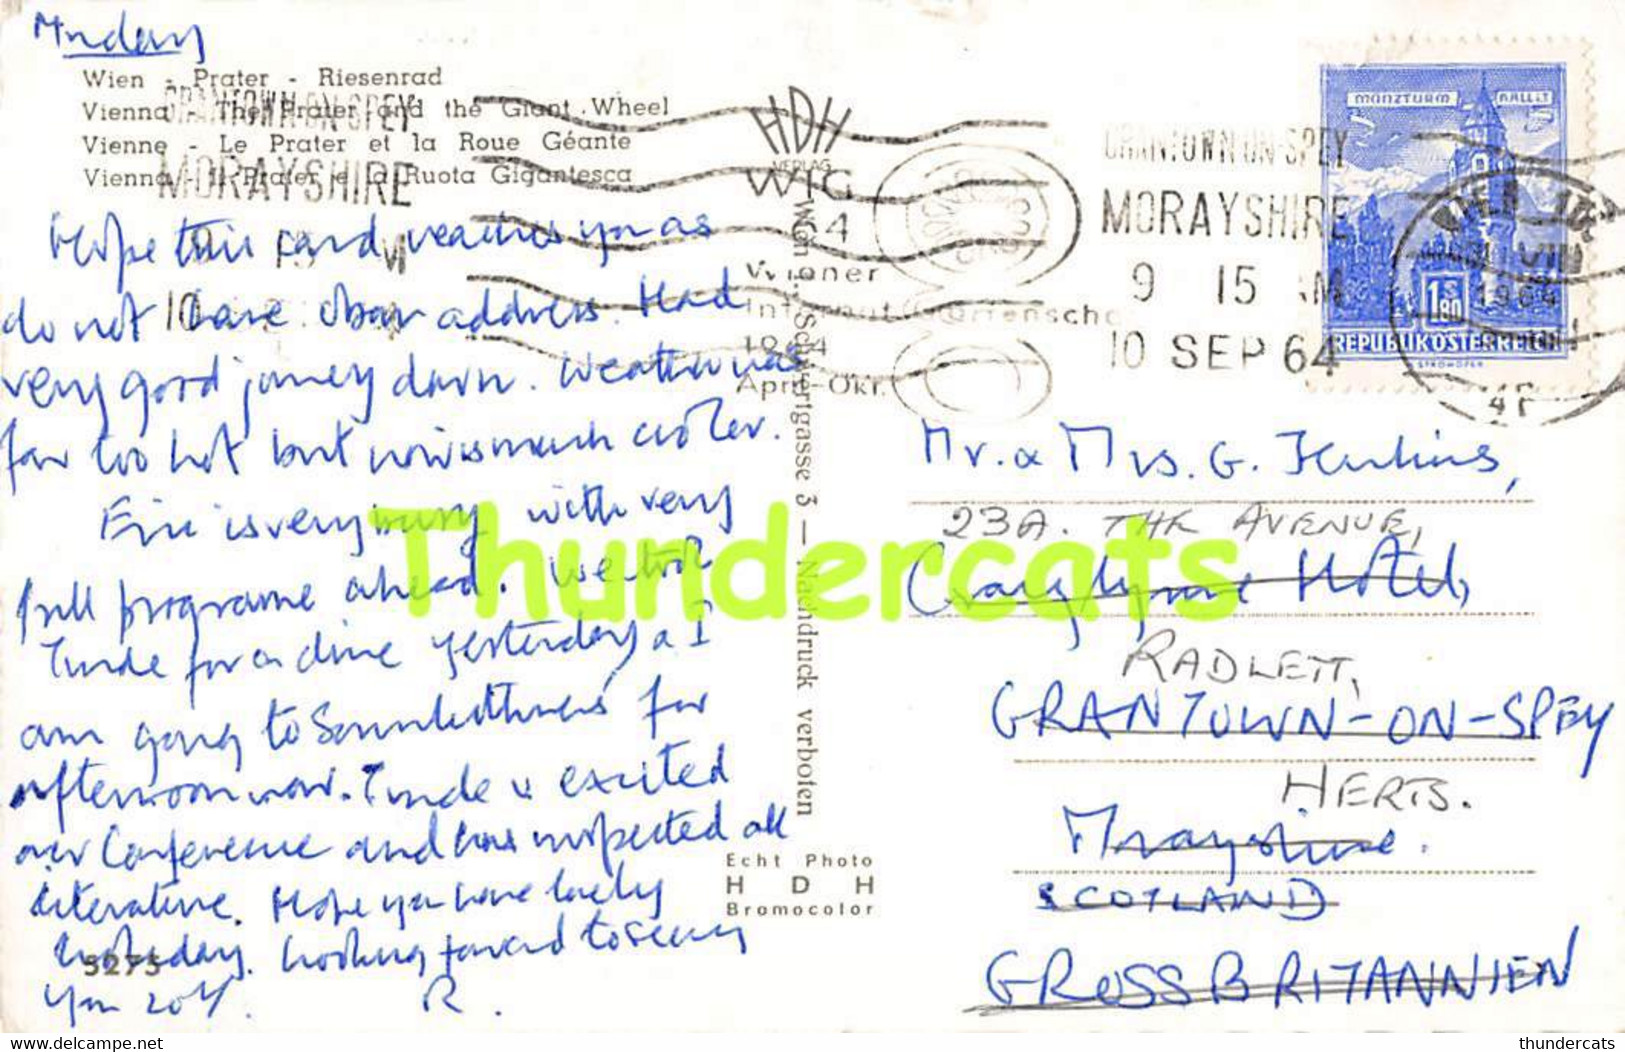 Monday
Wien - Prater - Riesenrad
Vienna - The Prater and the Giant Wheel
Vienne - Le Prater et la Roue Géante
Vienna - Il Prater e la Ruota Gigantesca
GRANTOWN-ON-SPEY
MORAYSHIRE
Hope this card reaches you as
do not have other address. Had
very good journey down. Weather was
far too hot but now is much cooler.
Eric is very busy with very
full programme ahead. We took
Trude for a drive yesterday & I
am going to for
afternoon now. Trude is excited
over Conference and has inspected all
literature. Hope you have lovely
holiday. Looking forward to seeing
you 20th. R.
5275
HDH
VERLAG
WIG
64
Wiener
Internat. Gartenschau
1964
April-Okt.
Wien 9., Schubertgasse 3 — Nachdruck verboten
Echt Photo
HDH
Bromocolor
GRANTOWN-ON-SPEY
MORAYSHIRE
9 15 AM
10 SEP 64
MÜNZTURM HALL i.T.
1 S 80
REPUBLIK ÖSTERREICH
WIEN
1964
Mr. & Mrs. G. Jenkins,
23A. THE AVENUE,
Craiglynne Hotel,
RADLETT,
GRANTOWN-ON-SPEY
HERTS.
Morayshire.
SCOTLAND
GROSSBRITANNIEN
Thundercats
www.delcampe.net
thundercats